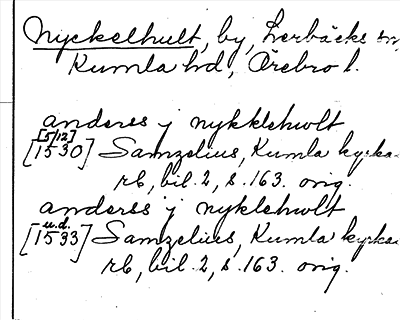 Nyckelhult, by, Lerbäcks sn,
Kumla hd, Örebro l.
anderss j nykklehwlt
[5/12]
[1530] Samzelius, Kumla kyrka
rb, bil. 2, s. 163. orig.
anderss j nyklehwlt
u.d.
[1533] Samzelius, Kumla kyrka
rb, bil. 2, s. 163. orig.